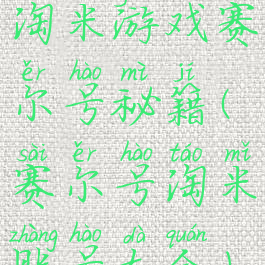 淘米游戏赛
ěr hào mì jí
尔号秘籍(
sài ěr hào táo mǐ
赛尔号淘米
zhàng hào dà quán
账号大全)